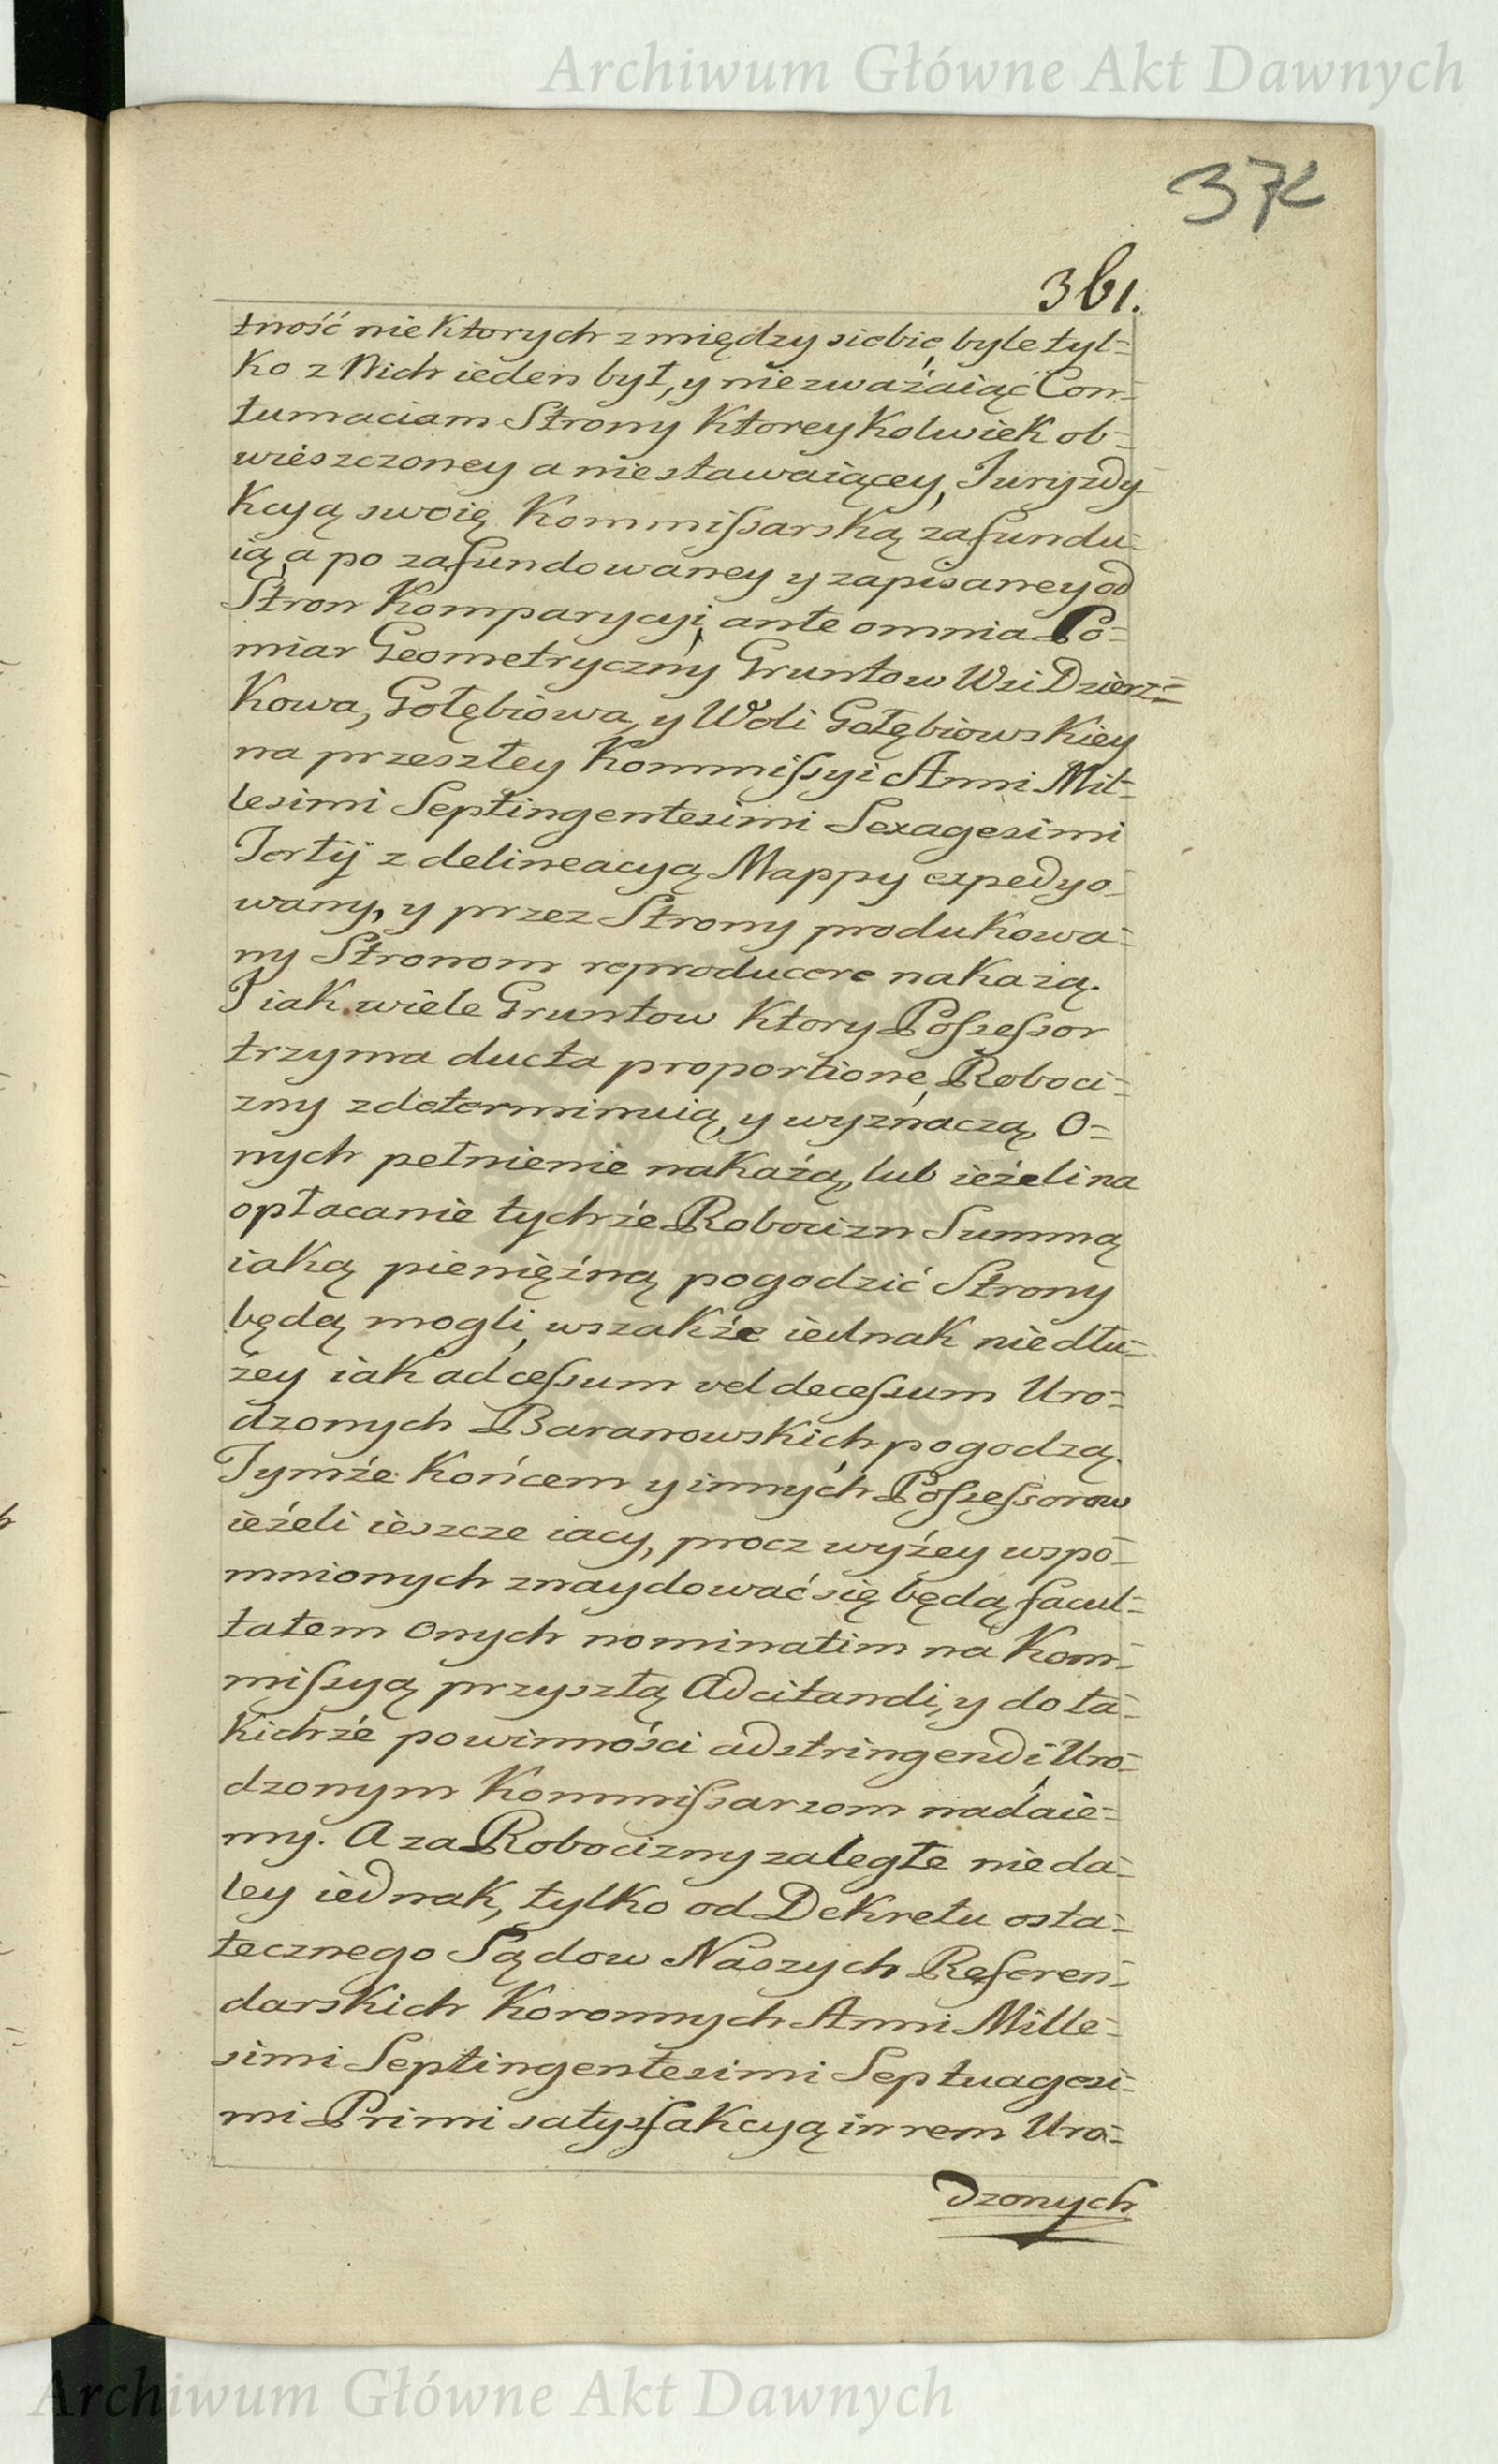 Archiwum Główne Akt Dawnych
372
361.
tność nie Ktorych z między siebie, byle tyl=
Ko z Nich ieden był, y nie zważaiąć Con=
tumaciam Strony KtoreyKolwieK ob=
wieszczoney a nie stawaiącey, Juryzdy=
Kcyą swoię Kommißarską zafundu=
ią, a po zafundowaney y zapisaney od
Stron Komparycyi, ante omnia Po=
miar Geometryczny Gruntow Wsi Dzierz=
Kowa, Gołębiowa, y Woli GołębiowsKiey
na przeszłey Kommißyi Anni Mil=
lesimi Septingentesimi Sexagesimi
Tertij z delineacyą Mappy expedyo=
wany, y przez Strony produKowa=
ny Stronom reproducere naKażą.
I iaK wiele Gruntow Ktory Poßeßor
trzyma ducta proportione, Roboci=
zny zdeterminuią, y wyznaczą, O=
nych pełnienie naKażą, lub ieżeli na
opłacanie tychże Robocizn Summą
iaKą pieniężną pogodzić Strony
będą mogli, wszaKże iednaK nie dłu=
żey iaK ad ceßum vel deceßum Uro=
dzonych BaranowsKich, pogodzą.
Tymże Końcem y innych Poßeßorow
ieżeli ieszcze iacy, procz wyżey wspo=
mnionych znaydować się będą, facul=
tatem onych nominatim na Kom=
mißyą przyszłą Adcitandi, y do ta=
Kichże powinności adstringendi, Uro=
dzonym Kommißarzom nadaie=
my. A za Robocizny zaległe nie da=
ley iednaK, tylKo od DeKretu osta=
tecznego Sądow Naszych Referen=
darsKich Koronnych Anni Mille=
simi Septingentesimi Septuagesi=
mi Primi satysfaKcyą in rem Uro=
dzonych
Archiwum Główne Akt Dawnych